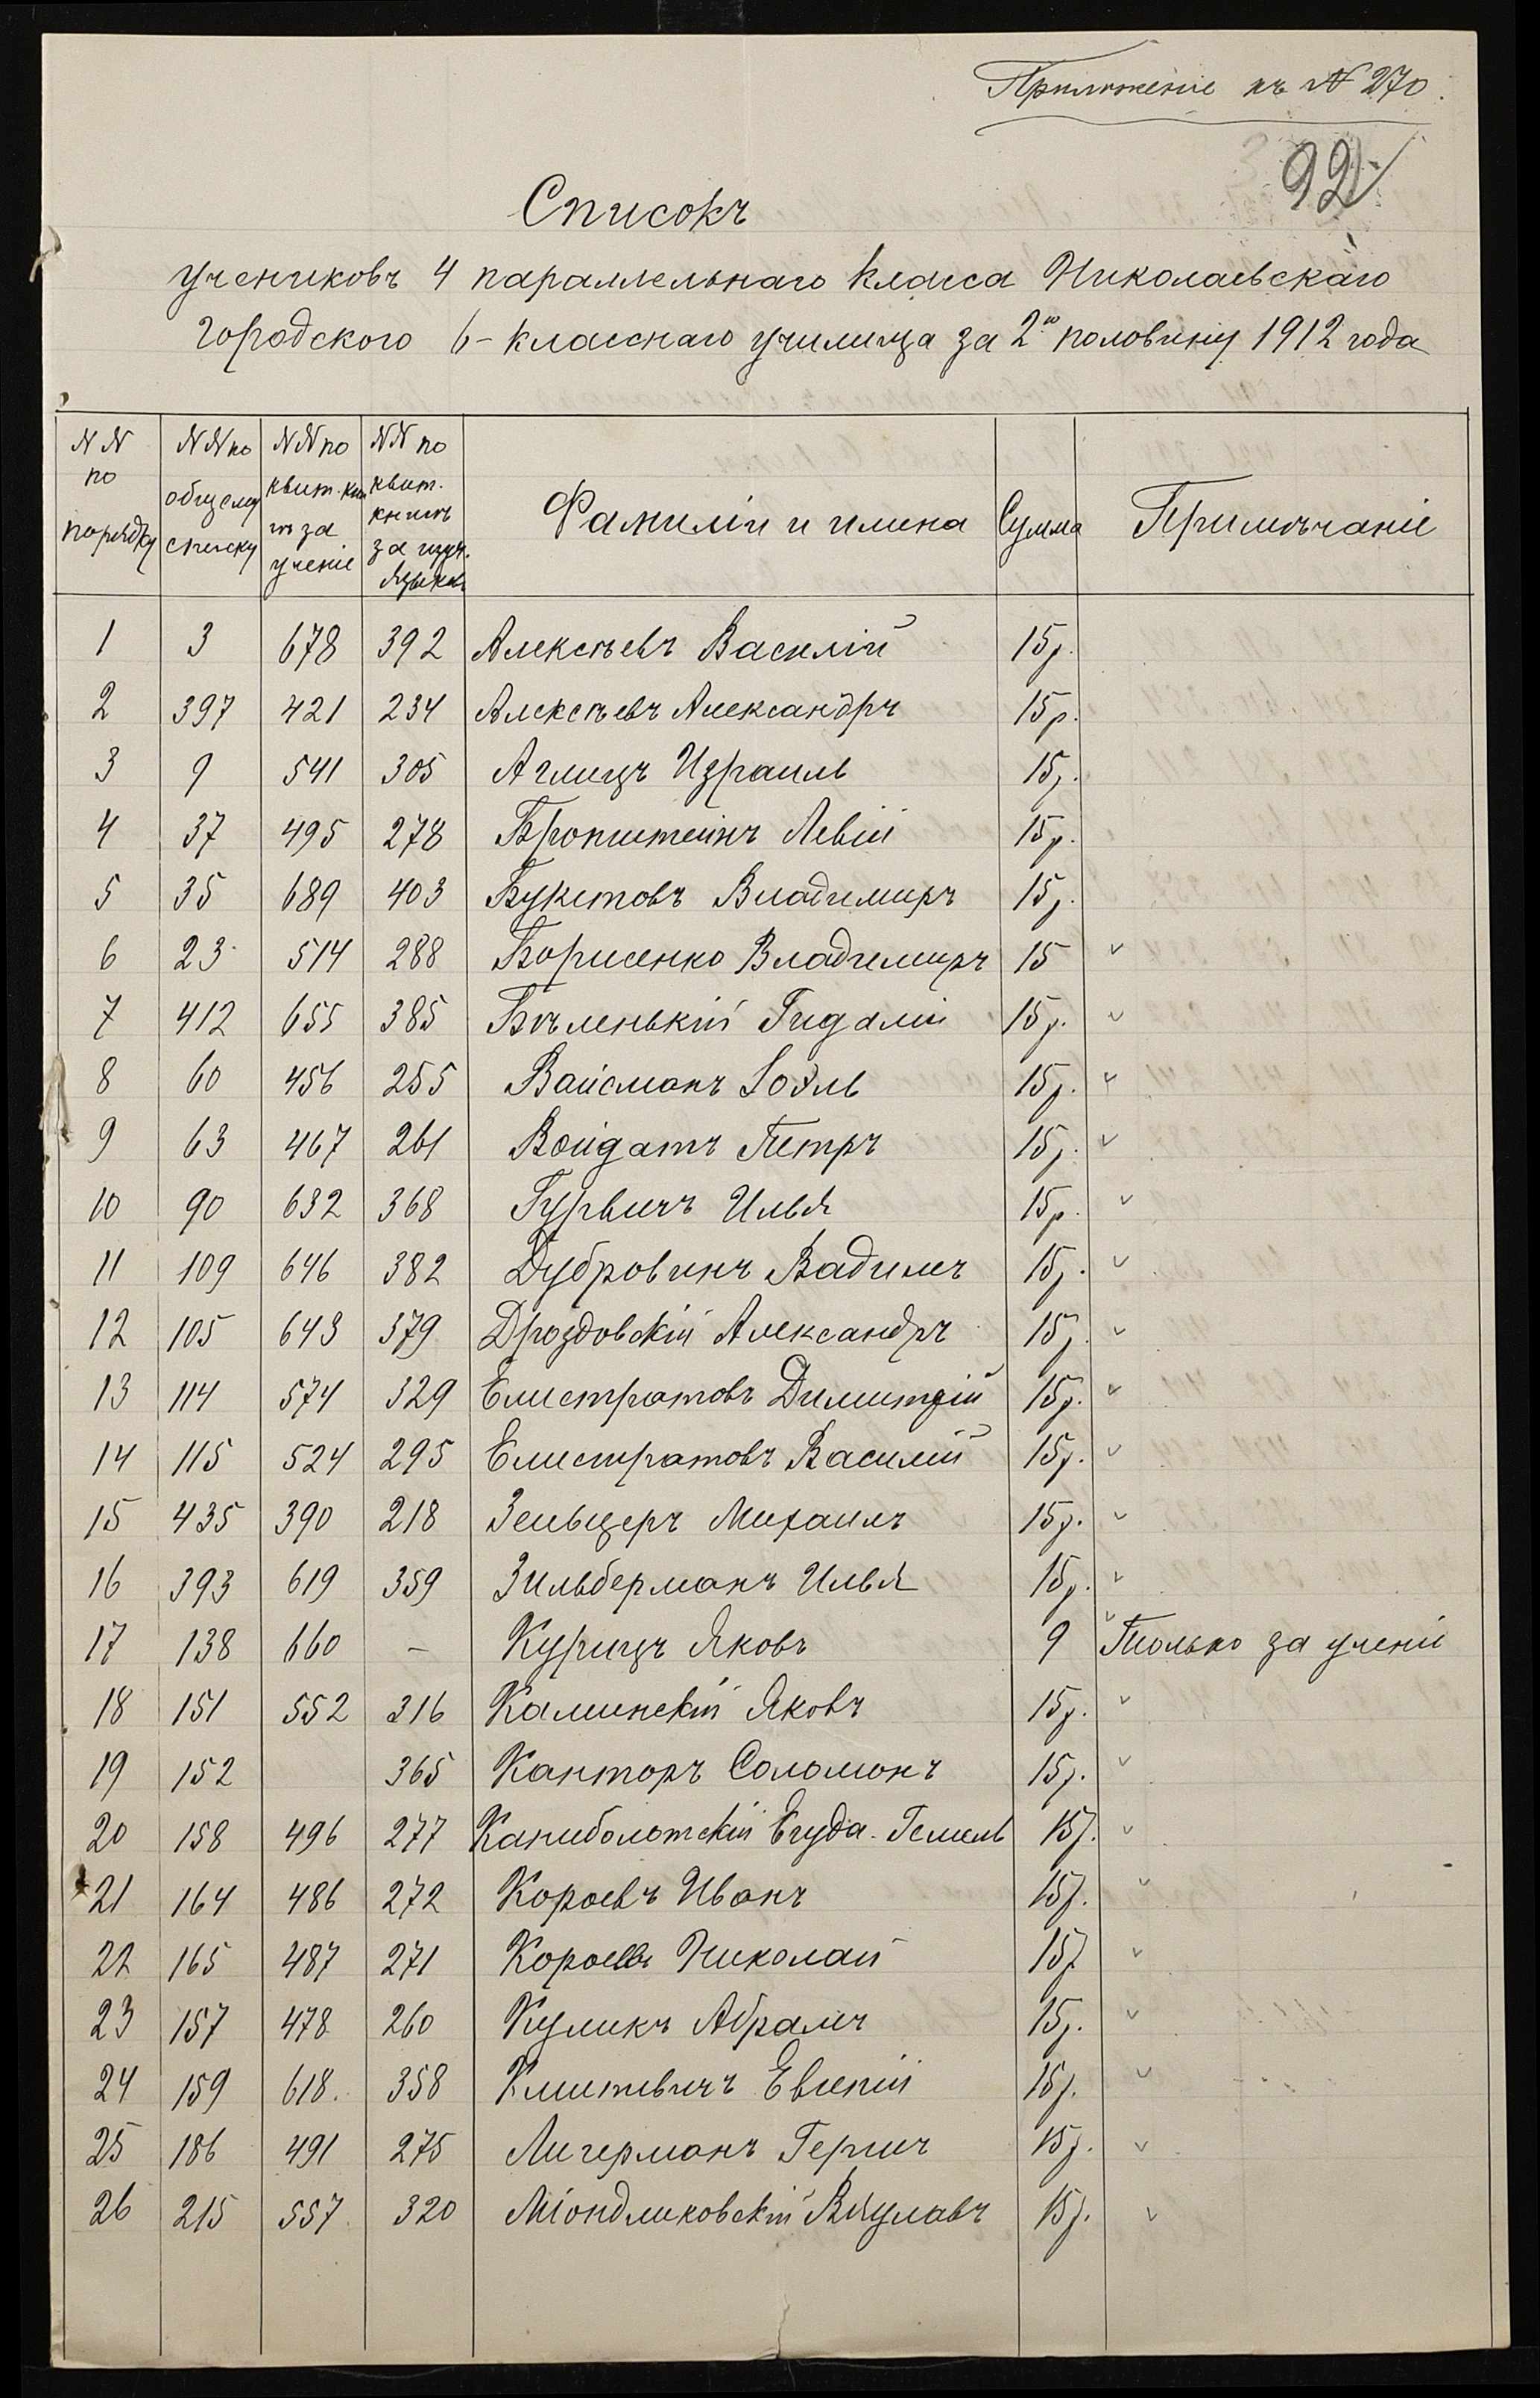 Приложеніе къ № 270.
92
Списокъ
учениковъ 4 параллельнаго класса Николаевскаго
городского 6-класснаго училища за 2ю половину 1912 года
NN по порядку | NN по общему списку | NN по квит. кни гѣ за ученіе | NN по квит. книгѣ за изуч. языковъ | Фамиліи и имена | Сумма | Примѣчаніе
1 3 678 392 Алексѣевъ Василій 15р.
2 397 421 234 Алексѣевъ Александръ 15р.
3 9 541 305 Аглицъ Израиль 15р.
4 37 495 278 Бронштейнъ Левій 15р.
5 35 689 403 Букетовъ Владимиръ 15р.
6 23 514 288 Борисенко Владимиръ 15
7 412 655 385 Бѣленькій Гидалій 15р.
8 60 456 255 Вайсманъ Іоэль 15р.
9 63 467 261 Войдатъ Петръ 15р.
10 90 632 368 Гурвичъ Илья 15р.
11 109 646 382 Дубровинъ Вадимъ 15р.
12 105 643 379 Дроздовскій Александръ 15р.
13 114 574 329 Елистратовъ Димитрій 15р.
14 115 524 295 Елистратовъ Василій 15р.
15 435 390 218 Зельцеръ Михаилъ 15р.
16 393 619 359 Зильберманъ Илья 15р.
17 138 660 — Курицъ Яковъ 9 Только за ученіе
18 151 552 316 Каминскій Яковъ 15р.
19 152 365 Канторъ Соломонъ 15р.
20 158 496 277 Каниболотскій Егуда-Гемель 15р.
21 164 486 272 Короевъ Иванъ 15р.
22 165 487 271 Короевъ Николай 15р
23 157 478 260 Куликъ Абрамъ 15р.
24 159 618. 358 Климтевичъ Евгеній 15р.
25 186 491 275 Лигерманъ Гершъ 15р.
26 215 557 320 Міондликовскій Вячулавъ 15р.